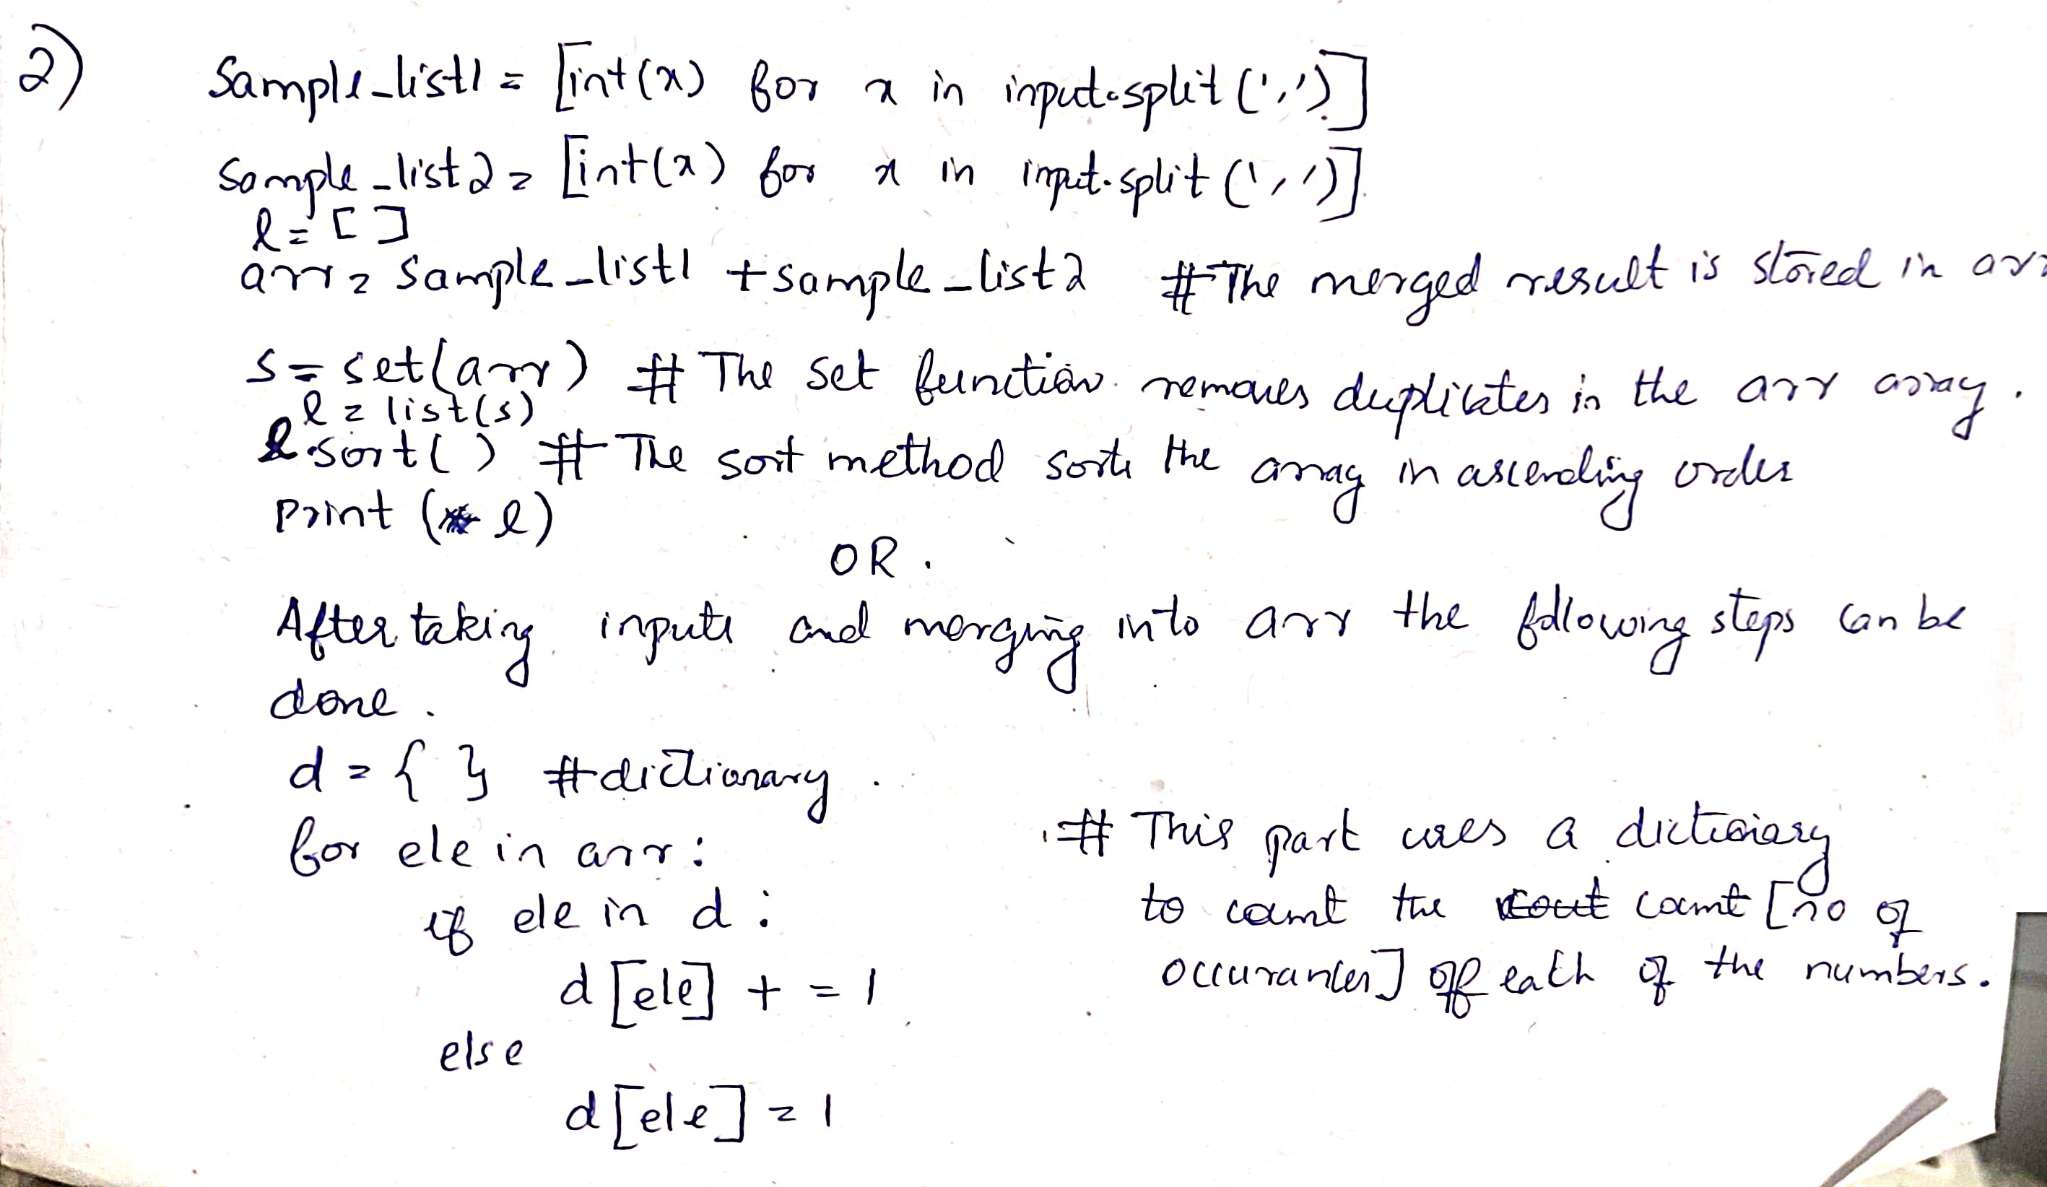 2)
Sample_list1 = [int(x) for x in input.split(',')]
Sample_list2 = [int(x) for x in input.split(',')]
l = []
arr = Sample_list1 + sample_list2 # The merged result is stored in arr
s = set(arr) # The set function removes duplicates in the arr array.
l = list(s)
l.sort() # The sort method sorts the array in ascending order
print (l)
OR.
After taking inputs and merging into arr the following steps can be
done.
d = { } # dictionary.
for ele in arr:
if ele in d:
d[ele] += 1
else
d[ele] = 1
# This part uses a dictioiary
to count the cout count [no of
occurances] of each of the numbers.